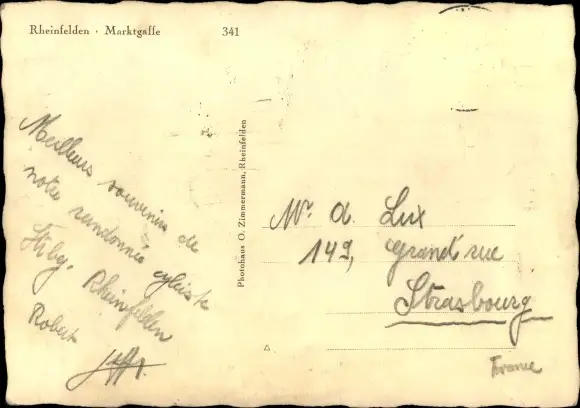 Rheinfelden · Marktgasse 341
Meilleurs souvenirs de
notre randonnée cycliste
Stbg. Rheinfelden
Robert
Photohaus O. Zimmermann, Rheinfelden
Mr. A. Lux
149, Grand'rue
Strasbourg
France